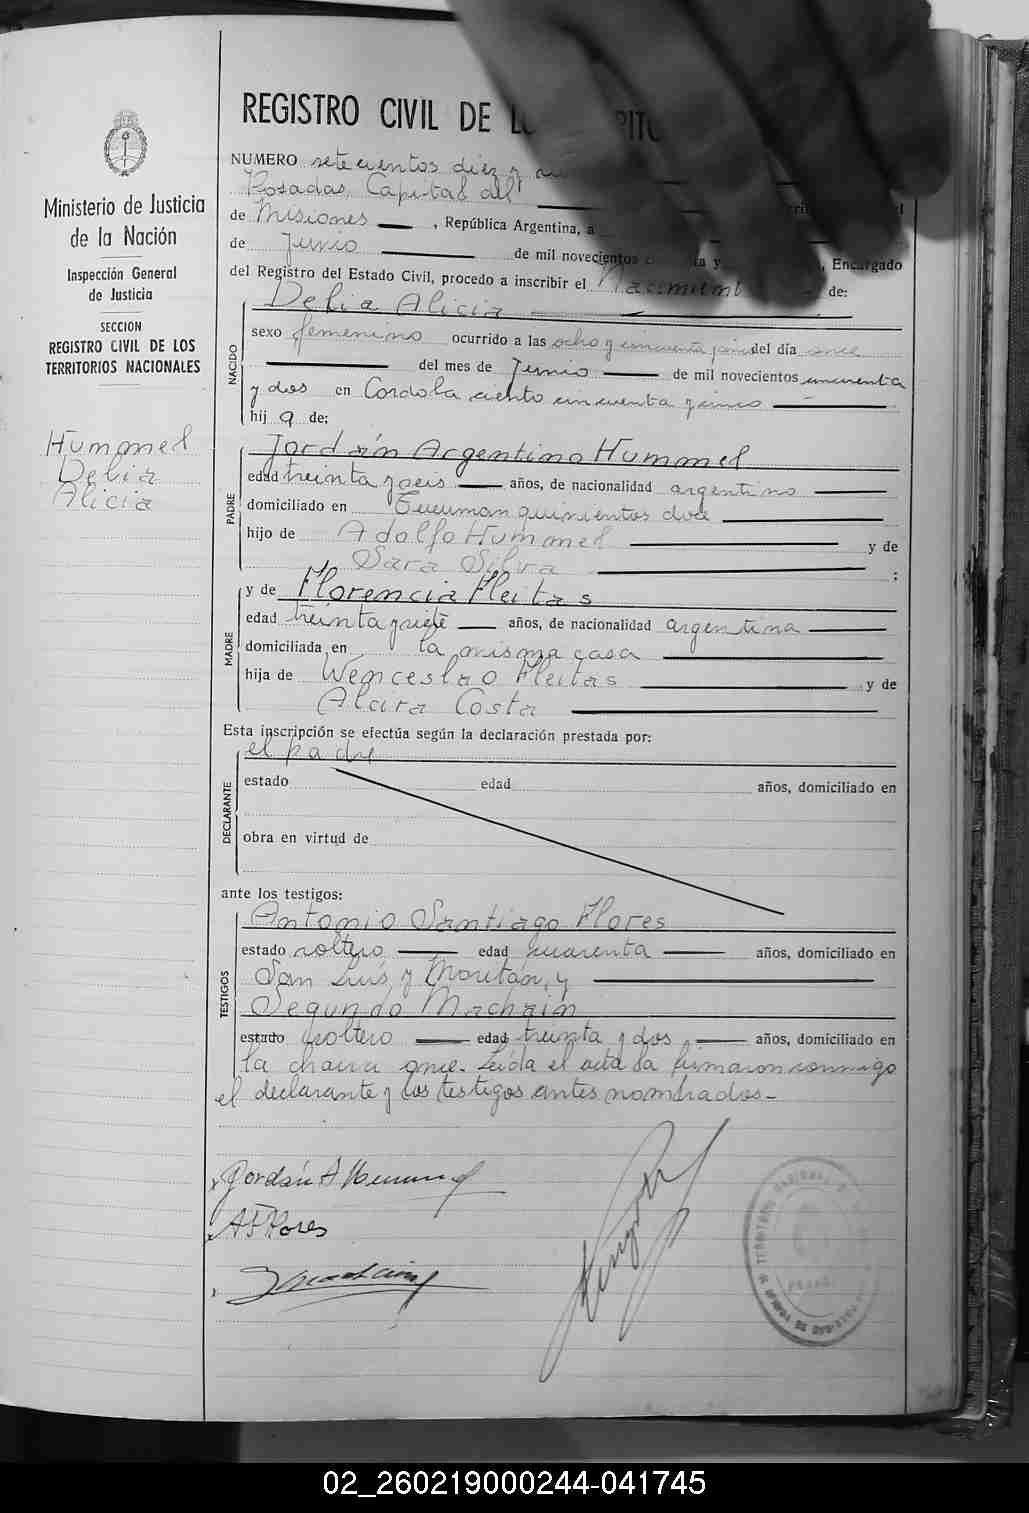 REGISTRO CIVIL DE
Ministerio de Justicia
de la Nación
Inspección General
de Justicia
SECCION
REGISTRO CIVIL DE LOS
TERRITORIOS NACIONALES
Hummel
Delia
Alicia
NUMERO setecientos diez y
Posadas, Capital del
de Misiones, República Argentina, a
de Junio de mil novecientos y, Encargado
del Registro del Estado Civil, procedo a inscribir el Nacimient de:
Delia Alicia
NACIDO
sexo femenino ocurrido a las ocho y cincuenta del día once
del mes de Junio de mil novecientos cincuenta
y dos en Cordoba ciento cincuenta y cinco
hij a de:
PADRE
Jordán Argentino Hummel
edad treinta y seis años, de nacionalidad argentino
domiciliado en Tucuman quinientos doce
hijo de Adolfo Hummel y de
Sara Silva:
MADRE
y de Florencia Fleitas
edad treinta y siete años, de nacionalidad argentina
domiciliada en la misma casa
hija de Wenceslao Fleitas y de
Alcira Costa
Esta inscripción se efectúa según la declaración prestada por:
DECLARANTE
el padre
estado edad años, domiciliado en
obra en virtud de
ante los testigos:
TESTIGOS
Antonio Santiago Flores
estado soltero edad cuarenta años, domiciliado en
San Luis y Moritán, y
Segundo Machain
estado soltero edad treinta y dos años, domiciliado en
la chacra once. Leída el acta la firmaron conmigo
el declarante y los testigos antes nombrados.-
Jordán A Hummel
A S Flores
02_260219000244-041745